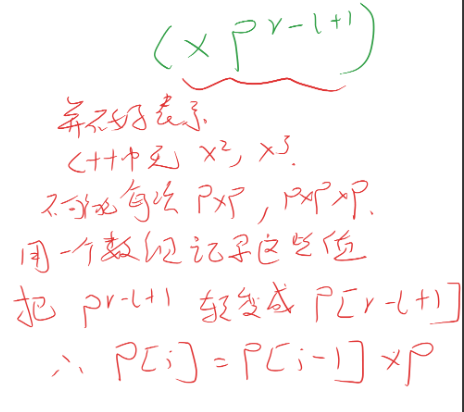 (× P^{r-l+1})
并不好表示
C++中无 x², x³.
不可能每次 P×P, P×P×P.
用一个数组记录这些值
把 P^{r-l+1} 转变成 P[r-l+1]
∴ P[i] = P[i-1] × P